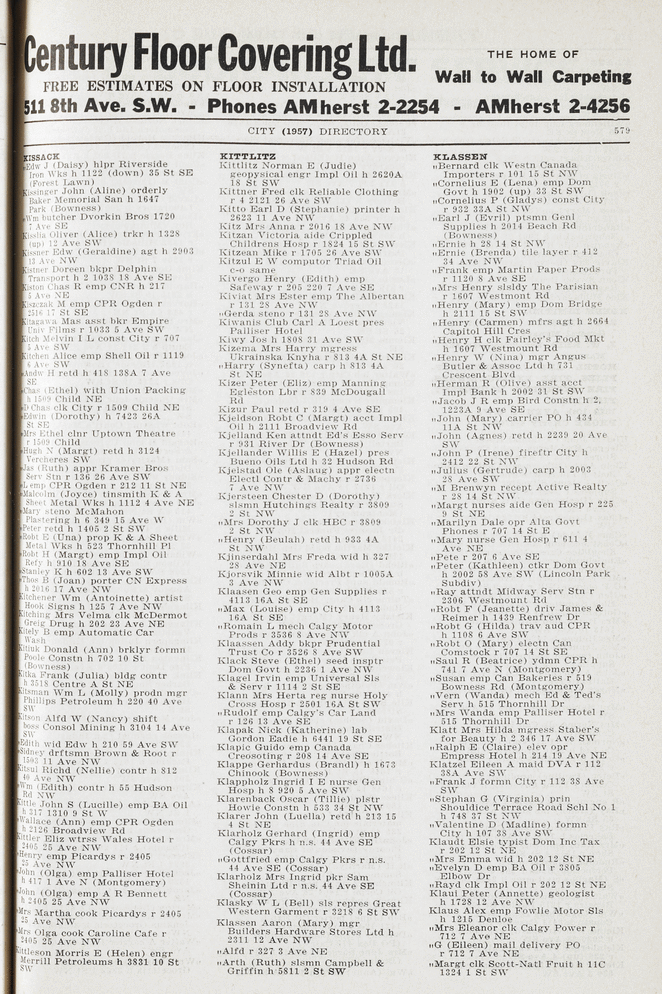 Century Floor Covering Ltd.
FREE ESTIMATES ON FLOOR INSTALLATION
THE HOME OF
Wall to Wall Carpeting
511 8th Ave. S.W. - Phones AMherst 2-2254 - AMherst 2-4256
CITY (1957) DIRECTORY
579
KISSACK
„Edw J (Daisy) hlpr Riverside
Iron Wks h 1122 (down) 35 St SE
(Forest Lawn)
Kissinger John (Aline) orderly
Baker Memorial San h 1647
Park (Bowness)
„Wm butcher Dvorkin Bros 1720
7 Ave SE
Kisslia Oliver (Alice) trkr h 1328
(up) 12 Ave SW
Kissner Edw (Geraldine) agt h 2903
13 Ave NW
Kistner Doreen bkpr Delphin
Transport h 2 1038 18 Ave SE
Kiston Chas R emp CNR h 217
5 Ave NE
Kiszczak M emp CPR Ogden r
2516 17 St SE
Kitagawa Mas asst bkr Empire
Univ Films r 1033 5 Ave SW
Kitch Melvin I L const City r 707
1 Ave SW
Kitchen Alice emp Shell Oil r 1119
6 Ave SW
„Andw H retd h 418 138A 7 Ave
SE
„Chas (Ethel) with Union Packing
h 1509 Child NE
„D Chas clk City r 1509 Child NE
„Edwin (Dorothy) h 7423 26A
St SE
„Mrs Ethel clnr Uptown Theatre
r 1509 Child
„Hugh N (Margt) retd h 3124
Vercheres SW
„Jas (Ruth) appr Kramer Bros
Serv Stn r 136 26 Ave SW
„L emp CPR Ogden r 212 11 St NE
„Malcolm (Joyce) tinsmith K & A
Sheet Metal Wks h 1112 4 Ave NE
„Mary steno McMahon
Plastering h 6 349 15 Ave W
„Peter retd h 1405 2 St SW
„Robt E (Una) prop K & A Sheet
Metal Wks h 523 Thornhill Pl
„Robt H (Margt) emp Impl Oil
Refy h 910 18 Ave SE
„Stanley K h 602 13 Ave SW
„Thos B (Joan) porter CN Express
h 2016 17 Ave NW
Kitchener Wm (Antoinette) artist
Hook Signs h 125 7 Ave NW
Kitching Mrs Velma clk McDermot
Greig Drug h 202 23 Ave NE
Kitely B emp Automatic Car
Wash
Kitiuk Donald (Ann) brklyr formn
Poole Constn h 702 10 St
(Bowness)
Kitka Frank (Julia) bldg contr
h 3518 Centre A St NE
Kitsman Wm L (Molly) prodn mgr
Phillips Petroleum h 220 40 Ave
SW
Kitson Alfd W (Nancy) shift
boss Consol Mining h 3104 14 Ave
SW
„Edith wid Edw h 210 59 Ave SW
„Sidney drftsmn Brown & Root r
1503 11 Ave NW
Kitsul Richd (Nellie) contr h 812
40 Ave NW
„Wm (Edith) contr h 55 Hudson
Rd NW
Kittle John S (Lucille) emp BA Oil
h 317 1310 9 St W
„Wallace (Ann) emp CPR Ogden
h 2126 Broadview Rd
Kittler Eliz wtrss Wales Hotel r
2405 25 Ave NW
„Henry emp Picardys r 2405
25 Ave NW
„John (Olga) emp Palliser Hotel
h 417 1 Ave N (Montgomery)
„John (Olga) emp A R Bennett
h 2405 25 Ave NW
„Mrs Martha cook Picardys r 2405
25 Ave NW
„Mrs Olga cook Caroline Cafe r
2405 25 Ave NW
Kittleson Morris E (Helen) engr
Merrill Petroleums h 3831 10 St
SW
KITTLITZ
Kittlitz Norman E (Judie)
geophysical engr Impl Oil h 2620A
18 St SW
Kittner Fred clk Reliable Clothing
r 4 2121 26 Ave SW
Kitto Earl D (Stephanie) printer h
2623 11 Ave NW
Kitz Mrs Anna r 2016 18 Ave NW
Kitzan Victoria aide Crippled
Childrens Hosp r 1824 15 St SW
Kitzean Mike r 1705 26 Ave SW
Kitzul E W computor Triad Oil
c-o same
Kivergo Henry (Edith) emp
Safeway r 205 220 7 Ave SE
Kiviat Mrs Ester emp The Albertan
r 131 28 Ave NW
„Gerda steno r 131 28 Ave NW
Kiwanis Club Carl A Loest pres
Palliser Hotel
Kiwy Jos h 1808 31 Ave SW
Kizema Mrs Harry mgress
Ukrainska Knyha r 813 4A St NE
„Harry (Synefta) carp h 813 4A
St NE
Kizer Peter (Eliz) emp Manning
Egleston Lbr r 839 McDougall
Rd
Kizur Paul retd r 319 4 Ave SE
Kjeldson Robt C (Margt) acct Impl
Oil h 2111 Broadview Rd
Kjelland Ken attndt Ed's Esso Serv
r 931 River Dr (Bowness)
Kjellander Willis E (Hazel) pres
Bueno Oils Ltd h 32 Hudson Rd
Kjelstad Ole (Aslaug) appr electn
Electl Contr & Machy r 2736
7 Ave NW
Kjersteen Chester D (Dorothy)
slsmn Hutchings Realty r 3809
2 St NW
„Mrs Dorothy J clk HBC r 3809
2 St NW
„Henry (Beulah) retd h 933 4A
St NW
Kjinserdahl Mrs Freda wid h 327
28 Ave NE
Kjorsvik Minnie wid Albt r 1005A
3 Ave NW
Klaasen Geo emp Gen Supplies r
4113 16A St SE
„Max (Louise) emp City h 4113
16A St SE
„Romain L mech Calgy Motor
Prods r 3536 8 Ave NW
Klaassen Addy bkpr Prudential
Trust Co r 3526 8 Ave SW
Klack Steve (Ethel) seed insptr
Dom Govt h 2236 1 Ave NW
Klagel Irvin emp Universal Sls
& Serv r 1114 2 St SE
Klann Mrs Herta reg nurse Holy
Cross Hosp r 2501 16A St SW
„Rudolf emp Calgy's Car Land
r 126 13 Ave SE
Klapak Nick (Katherine) lab
Gordon Eadie h 6441 19 St SE
Klapic Guido emp Canada
Creosoting r 208 14 Ave SE
Klappe Gerhardus (Brandi) h 1673
Chinook (Bowness)
Klappholz Ingrid I E nurse Gen
Hosp h 8 920 5 Ave SW
Klarenback Oscar (Tillie) plstr
Howie Constn h 533 34 St NW
Klarer John (Luella) retd h 213 15
4 St NE
Klarholz Gerhard (Ingrid) emp
Calgy Pkrs h n.s. 44 Ave SE
(Cossar)
„Gottfried emp Calgy Pkrs r n.s.
44 Ave SE (Cossar)
Klarholz Mrs Ingrid pkr Sam
Sheinin Ltd r n.s. 44 Ave SE
(Cossar)
Klasky W L (Bell) sls repres Great
Western Garment r 3218 6 St SW
Klassen Aaron (Mary) mgr
Builders Hardware Stores Ltd h
2311 12 Ave NW
„Alfd r 327 3 Ave NE
„Arth (Ruth) slsmn Campbell &
Griffin h 5811 2 St SW
KLASSEN
„Bernard clk Westn Canada
Importers r 101 15 St NW
„Cornelius E (Lena) emp Dom
Govt h 1902 (up) 33 St SW
„Cornelius P (Gladys) const City
r 932 33A St NW
„Earl J (Evril) ptsmn Genl
Supplies h 2014 Beach Rd
(Bowness)
„Ernie h 28 14 St NW
„Ernie (Brenda) tile layer r 412
34 Ave NW
„Frank emp Martin Paper Prods
r 1120 8 Ave SE
„Mrs Henry slsldy The Parisian
r 1607 Westmont Rd
„Henry (Mary) emp Dom Bridge
h 2111 15 St SW
„Henry (Carmen) mfrs agt h 2664
Capitol Hill Cres
„Henry H clk Fairley's Food Mkt
h 1607 Westmount Rd
„Henry W (Nina) mgr Angus
Butler & Assoc Ltd h 731
Crescent Blvd
„Herman R (Olive) asst acct
Impl Bank h 2002 31 St SW
„Jacob J R emp Bird Constn h 2,
1223A 9 Ave SE
„John (Mary) carrier PO h 434
11A St NW
„John (Agnes) retd h 2239 20 Ave
SW
„John P (Irene) fireftr City h
2412 22 St NW
„Julius (Gertrude) carp h 2003
28 Ave SW
„M Brenwyn recept Active Realty
r 28 14 St NW
„Margt nurses aide Gen Hosp r 225
9 St NE
„Marilyn Dale opr Alta Govt
Phones r 707 14 St E
„Mary nurse Gen Hosp r 611 4
Ave NE
„Pete r 207 6 Ave SE
„Peter (Kathleen) ctkr Dom Govt
h 2002 58 Ave SW (Lincoln Park
Subdiv)
„Ray attndt Midway Serv Stn r
2306 Westmount Rd
„Robt F (Jeanette) driv James &
Reimer h 1439 Renfrew Dr
„Robt G (Hilda) trav aud CPR
h 1108 6 Ave SW
„Robt O (Mary) electn Can
Comstock r 707 14 St SE
„Saul R (Beatrice) ydmn CPR h
741 7 Ave N (Montgomery)
„Susan emp Can Bakeries r 519
Bowness Rd (Montgomery)
„Vern (Wanda) mech Ed & Ted's
Serv h 515 Thornhill Dr
„Mrs Wanda emp Palliser Hotel r
515 Thornhill Dr
Klatt Mrs Hilda mgress Staber's
for Beauty h 2 346 17 Ave SW
„Ralph E (Claire) elev opr
Empress Hotel h 214 19 Ave NE
Klatzel Eileen A maid DVA r 112
38A Ave SW
„Frank J formn City r 112 38 Ave
SW
„Stephan G (Virginia) prin
Shouldice Terrace Road Schl No 1
h 748 37 St NW
„Valentine D (Madline) formn
City h 107 38 Ave SW
Klaudt Elsie typist Dom Inc Tax
r 202 12 St NE
„Mrs Emma wid h 202 12 St NE
„Evelyn D emp BA Oil r 3805
Elbow Dr
„Rayd clk Impl Oil r 202 12 St NE
Klaui Peter (Annette) geologist
h 1728 12 Ave NW
Klaus Alex emp Fowlie Motor Sls
h 1215 Denloe
„Mrs Eleanor clk Calgy Power r
712 7 Ave NE
„G (Eileen) mail delivery PO
r 712 7 Ave NE
„Margt clk Scott-Natl Fruit h 11C
1324 1 St SW